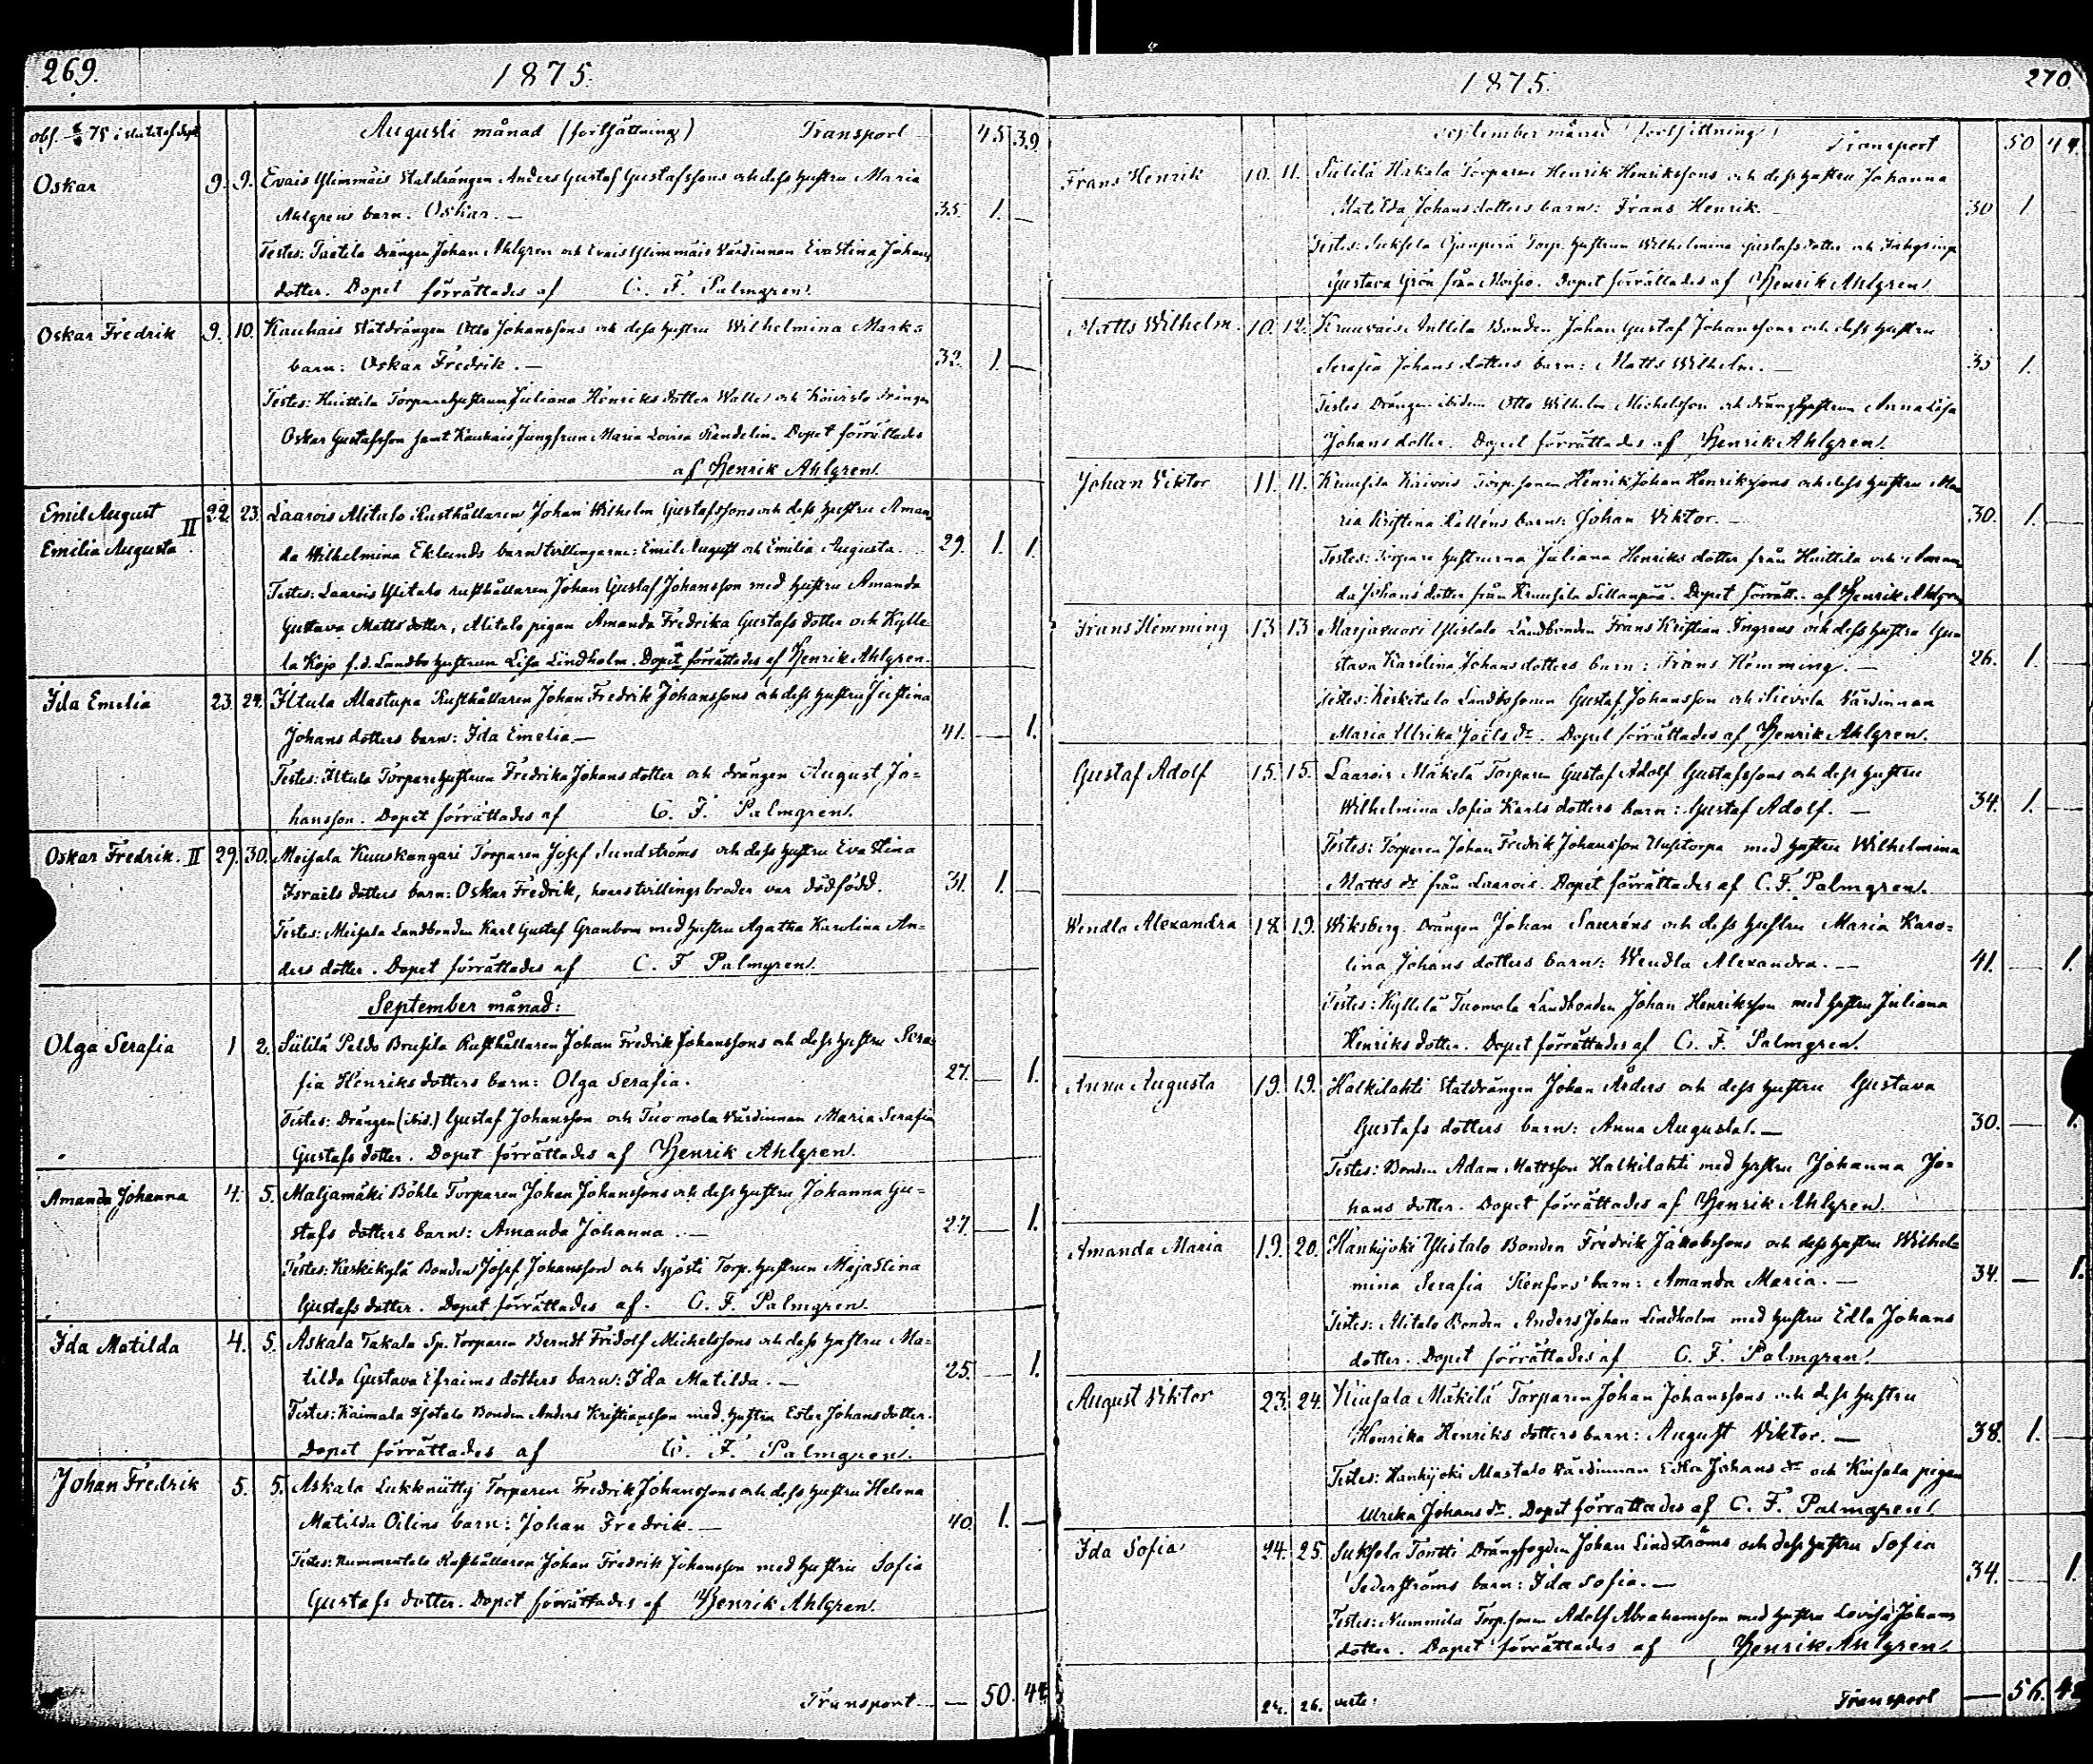 269.
1875.
Augusti månad (fortsättning) Transport 45 39.
Oskar 9. 9. Evais Ylimmäis Statdrängen Anders Gustaf Gustafssons och dess hustru Maria
Ahlgrens barn: Oskar. — 35. 1. —
Testes: Taatila Drängen Johan Ahlgren och Evais Ylimmäis Värdinnan Eva Stina Johans
dotter. Dopet förrättades af C. F. Palmgren.
Oskar Fredrik 9. 10. Kauhais Statdrängen Otto Johanssons och dess hustru Wilhelmina Marks
barn: Oskar Fredrik. — 32. 1. —
Testes: Huittila Torparehustrun Juliana Henriks dotter Walle och Koivisto Drängen
Oskar Gustafsson samt Kauhais Jungfrun Maria Lovisa Randelin. Dopet förrättades
af Henrik Ahlgren.
Emil August
Emilia Augusta II 22. 23. Laarois Alitalo Rusthållaren Johan Wilhelm Gustafssons och dess hustru Aman-
da Wilhelmina Eklunds barn tvillingarne: Emil August och Emilia Augusta. 29. 1. 1.
Testes: Laarois Ylitalo rusthållaren Johan Gustaf Johansson med hustru Amanda
Gustava Matts dotter, Alitalo pigan Amanda Fredrika Gustafs dotter och Kylle
la Kojo f.d. Landbo hustrun Lisa Lindholm. Dopet förrättades af Henrik Ahlgren.
Ida Emelia 23. 24. Iltula Alastupa Rusthållaren Johan Fredrik Johanssons och dess hustru Justina
Johans dotters barn: Ida Emelia. — 41. — 1.
Testes: Iltula Torparehustrun Fredrika Johans dotter och drängen August Jo=
hansson. Dopet förrättades af C. F. Palmgren.
Oskar Fredrik. II 29. 30. Meisala Kuuskangari Torparen Josef Sundströms och dess hustru Eva Stina
Israels dotters barn: Oskar Fredrik, hvars tvillingsbroder var dödfödd. 31. 1.
Testes: Meisala Landbonden Karl Gustaf Granbom med hustru Agatha Karolina An=
ders dotter. Dopet förrättades af C. F. Palmgren.
September månad:
Olga Serafia 1 2. Sülilä Peldo Brusila Rusthållaren Johan Fredrik Johanssons och dess hustru Sera=
fia Henriks dotters barn: Olga Serafia. 27. — 1.
Testes: Drängen (ibid.) Gustaf Johansson och Tuomola Värdinnan Maria Serafia
Gustafs dotter. Dopet förrättades af Henrik Ahlgren.
Amanda Johanna 4. 5. Maljamäki Böhle Torparen Johan Johanssons och dess hustru Johanna Gu=
stafs dotters barn: Amanda Johanna. — 27. — 1.
Testes: Keskikylä Bonden Josef Johansson och Torp. hustrun Maja Stina
Gustafs dotter. Dopet förrättades af. C. F. Palmgren.
Ida Matilda 4. 5. Askala Takala Sp. Torparen Berndt Fridolf Michelssons och dess hustru Ma=
tilda Gustava Efraims dotters barn: Ida Matilda. — 25. — 1.
Testes: Kaimala Bonden Anders Kristiansson med hustru Ester Johans dotter.
Dopet förrättades af C. F. Palmgren.
Johan Fredrik 5. 5. Askala Lukkniitty Torparen Fredrik Johanssons och dess hustru Helena
Matilda Oilins barn: Johan Fredrik. — 40. 1. —
Testes: Nummentalo Rusthållaren Johan Fredrik Johansson med hustru Sofia
Gustafs dotter. Dopet förrättades af Henrik Ahlgren.
Transport — 50. 44
1875.
270.
September månad (fortsättning) Transport 50 44.
Frans Henrik 10. 11. Sülilä Hakala Torparen Henrik Henrikssons och dess hustru Johanna
Matilda Johans dotters barn: Frans Henrik. 30 1
Testes: Suksela Torp. hustrun Wilhelmina Gustafs dotter och
Gustava Grön från Moisio. Dopet förrättades af Henrik Ahlgren.
Matts Wilhelm. 10. 12. Kruuvais Anttila Bonden Johan Gustaf Johanssons och dess hustru
Serafia Johans dotters barn: Matts Wilhelm. — 35 1.
Testes Drängen ibidem Otto Wilhelm Michelsson och dränghustrun Anna Lisa
Johans dotter. Dopet förrättades af Henrik Ahlgren.
Johan Viktor 11. 11. Kruusila Torp. sonen Henrik Johan Henrikssons och dess hustru Ma
ria Kristina Kalléns barn: Johan Viktor. — 30. 1.
Testes: Torpare hustrurna Juliana Henriks dotter från Huittila och Aman-
da Johans dotter från Kruusila Sillanpää. Dopet förrätt. af Henrik Ahlgren
Frans Hemming 13 13 Marjavuori Ylistalo Landbonden Frans Kristian Ingrens och dess hustru Gu
stava Karolina Johans dotters barn: Frans Hemming. — 26. 1.
Testes: Keskitalo Landbosonen Gustaf Johansson och Sievola Värdinnan
Maria Ulrika Joels dr. Dopet förrättades af Henrik Ahlgren.
Gustaf Adolf 15. 15. Laarois Mäkelä Torparen Gustaf Adolf Gustafssons och dess hustru
Wilhelmina Sofia Karls dotters barn: Gustaf Adolf. — 34. 1. —
Testes: Torparen Johan Fredrik Johansson Uusitorpa med hustru Wilhelmina
Matts dr från Laarois. Dopet förrättades af C. F. Palmgren.
Wendla Alexandra 18. 19. Wiksberg Drängen Johan Sauréns och dess hustru Maria Karo=
lina Johans dotters barn: Wendla Alexandra. — 41. 1.
Testes: Kyllelä Tuomola Landbonden Johan Henriksson med hustru Juliana
Henriks dotter. Dopet förrättades af C. F. Palmgren.
Anna Augusta 19. 19. Halkilahti Statdrängen Johan Ärders och dess hustru Gustava
Gustafs dotters barn: Anna Augusta. — 30. — 1.
Testes: Bonden Adam Mattsson Halkilahti med hustru Johanna Jo=
hans dotter. Dopet förrättades af Henrik Ahlgren.
Amanda Maria 19. 20. Hankijoki Ylistalo Bonden Fredrik Jakobssons och dess hustru Wilhel=
mina Serafia Renfors' barn: Amanda Maria. — 34. — 1.
Testes: Alitalo Bonden Anders Johan Lindholm med hustru Edla Johans
dotter. Dopet förrättades af C. F. Palmgren.
August Viktor 23. 24. Kiusala Mäkilä Torparen Johan Johanssons och dess hustru
Henrika Henriks dotters barn: August Viktor. — 38. 1. —
Testes: Hankijoki Alastalo Värdinnan Edla Johans dr och Kiusala pigan
Ulrika Johans dr. Dopet förrättades af C. F. Palmgren.
Ida Sofia 24. 25. Suksela Tontti Drängfogden Johan Lindströms och dess hustru Sofia
Sederströms barn: Ida Sofia. — 34. — 1.
Testes: Nummila Torp. sonen Adolf Abrahamsson med hustru Lovisa Johans
dotter. Dopet förrättades af Henrik Ahlgren.
24. 26. verte: Transport — 56.